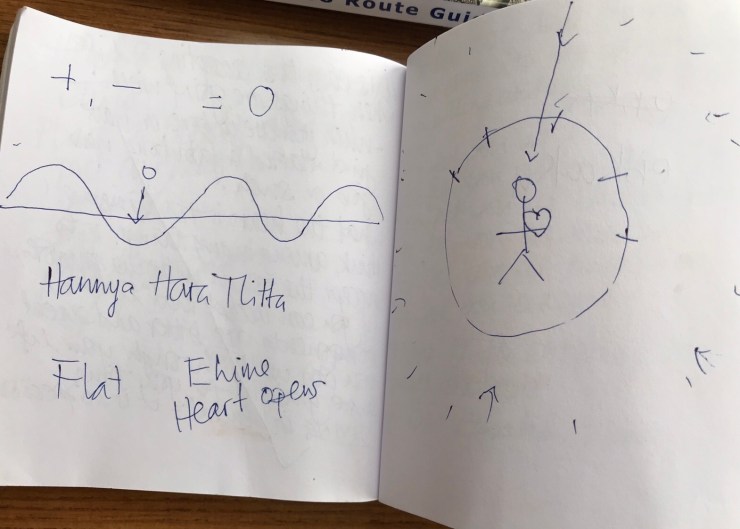 Route Gui
+, - = 0
0
Hannya Hara Tlitta
Flat
Ehime
Heart opens